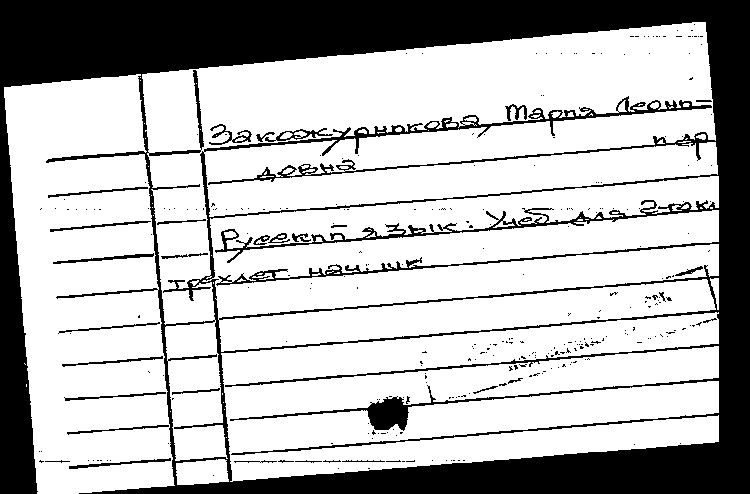 Закожурникова, Мария Леони=
и др
довна
Русский язык: Учеб. для 2-го кл
трехлет. нач. шк